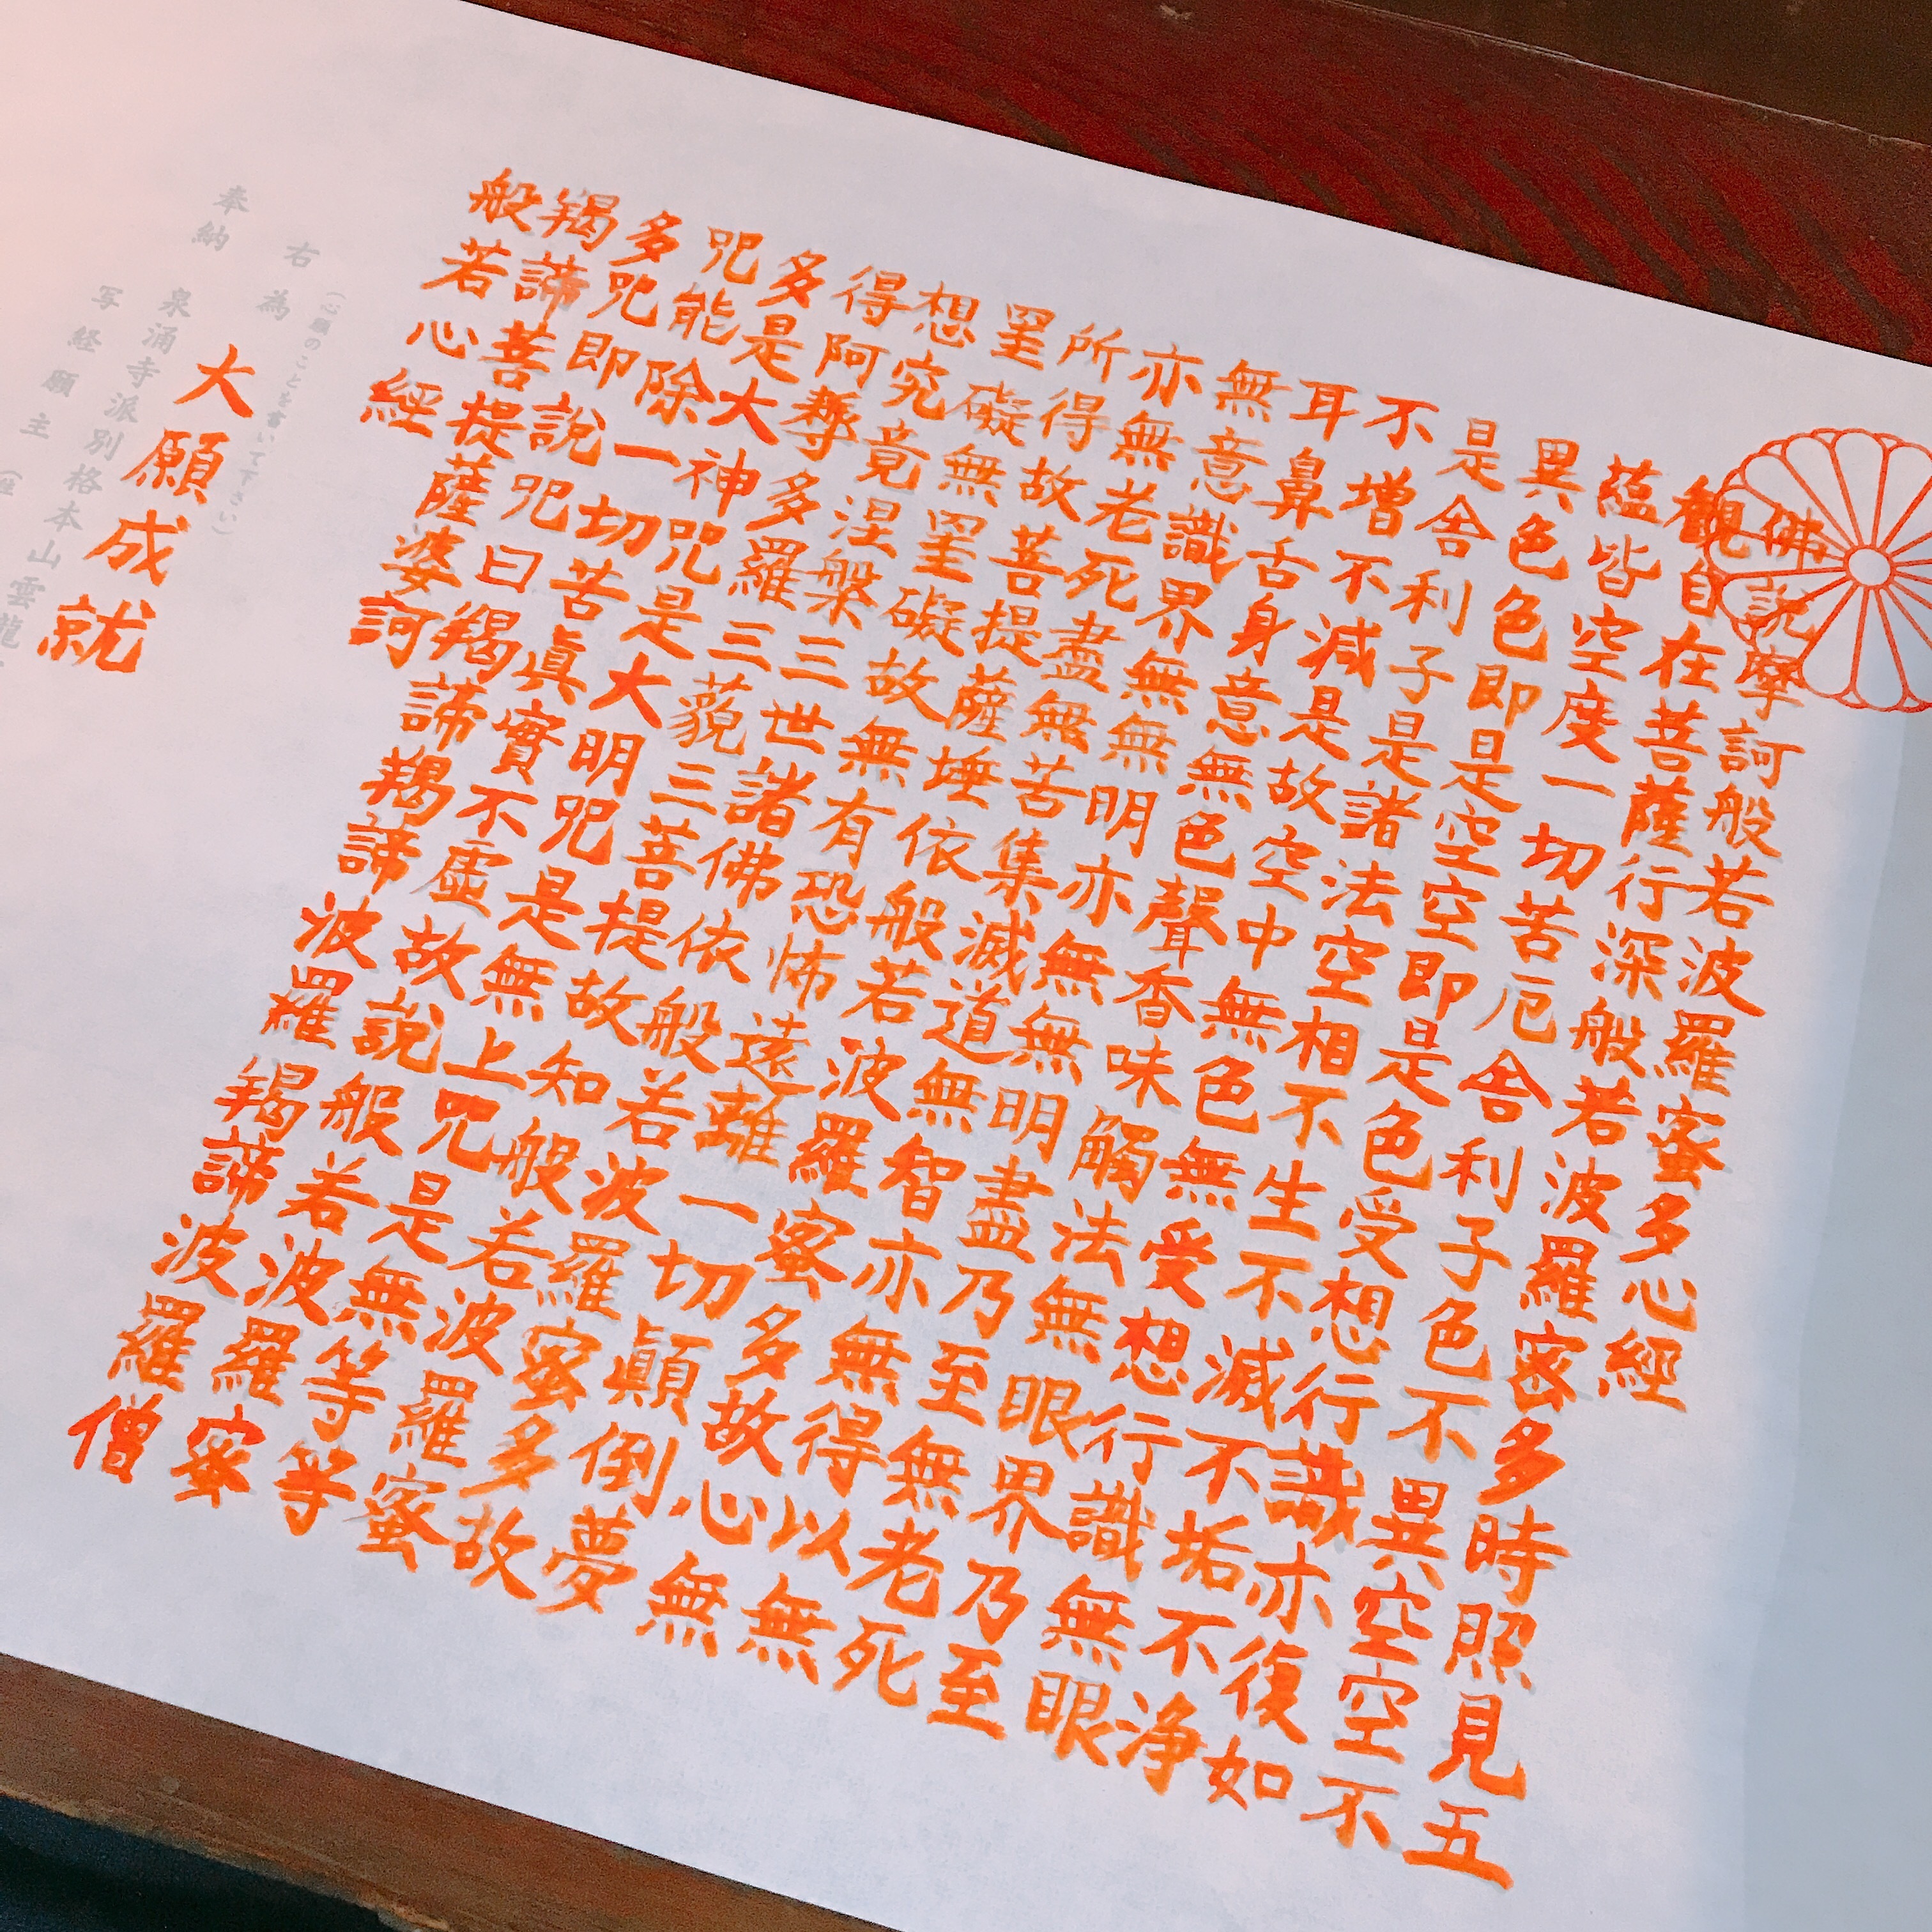 佛說摩訶般若波羅蜜多心經
觀自在菩薩行深般若波羅密多時照見五
蘊皆空度一切苦厄舍利子色不異空空不
異色色即是空空即是色受想行識亦復如
是舍利子是諸法空相不生不滅不垢不浄
不增不減是故空中無色無受想行識無眼
耳鼻舌身意無色聲香味觸法無眼界乃至
無意識界無無明亦無無明盡乃至無老死
亦無老死盡無苦集滅道無智亦無得以無
所得故菩提薩埵依般若波羅蜜多故心無
罣礙無罣礙故無有恐怖遠離一切顛倒夢
想究竟涅槃三世諸佛依般若波羅蜜多故
得阿耨多羅三藐三菩提故知般若波羅蜜
多是大神呪是大明呪是無上呪是無等等
呪能除一切苦眞實不虛故說般若波羅蜜
多呪即說呪曰羯諦羯諦波羅羯諦波羅僧
羯諦菩提薩婆訶
般若心經
右為
(心願のことを書いて下さい)
大願成就
奉納
泉涌寺派別格本山雲龍
写経願主